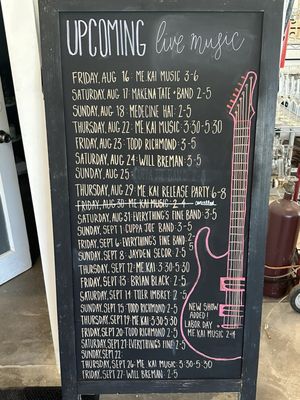 UPCOMING live music
FRIDAY, AUG 16- ME.KAI MUSIC 3-6
SATURDAY, AUG 17- MAKENA TATE + BAND 2-5
SUNDAY, AUG 18- MEDECINE HAT- 2-5
THURSDAY, AUG 22- ME.KAI MUSIC 3:30-5:30
FRIDAY, AUG 23- TODD RICHMOND- 2-5
SATURDAY, AUG 24- WILL BREMAN- 3-5
SUNDAY, AUG 25-
THURSDAY, AUG 29- ME KAI RELEASE PARTY 6-8
FRIDAY, AUG 30- ME KAI MUSIC 2-4
SATURDAY, AUG 31- EVERYTHING'S FINE BAND 3-5
SUNDAY, SEPT 1- CUPPA JOE BAND 3-5
FRIDAY, SEPT 6- EVERYTHING'S FINE BAND 2-5
SUNDAY, SEPT 8- JAYDEN SECOR- 2-5
THURSDAY, SEPT 12- ME.KAI 3:30-5:30
FRIDAY, SEPT 13- BRIAN BLACK- 2-5
SATURDAY, SEPT 14- TYLER IMBRET- 2-5
SUNDAY, SEPT 15- TODD RICHMOND- 2-5
THURSDAY, SEPT 19- ME KAI MUSIC 3:30-5:30
FRIDAY, SEPT 20- TODD RICHMOND- 2-5
SATURDAY, SEPT 21- EVERYTHINGS FINE- 2-5
SUNDAY, SEPT 22-
THURSDAY, SEPT 26- ME KAI MUSIC- 3:30-5:30
FRIDAY, SEPT 27- WILL BREMAN- 2-5
NEW SHOW
ADDED!
LABOR DAY
ME KAI MUSIC 2-4